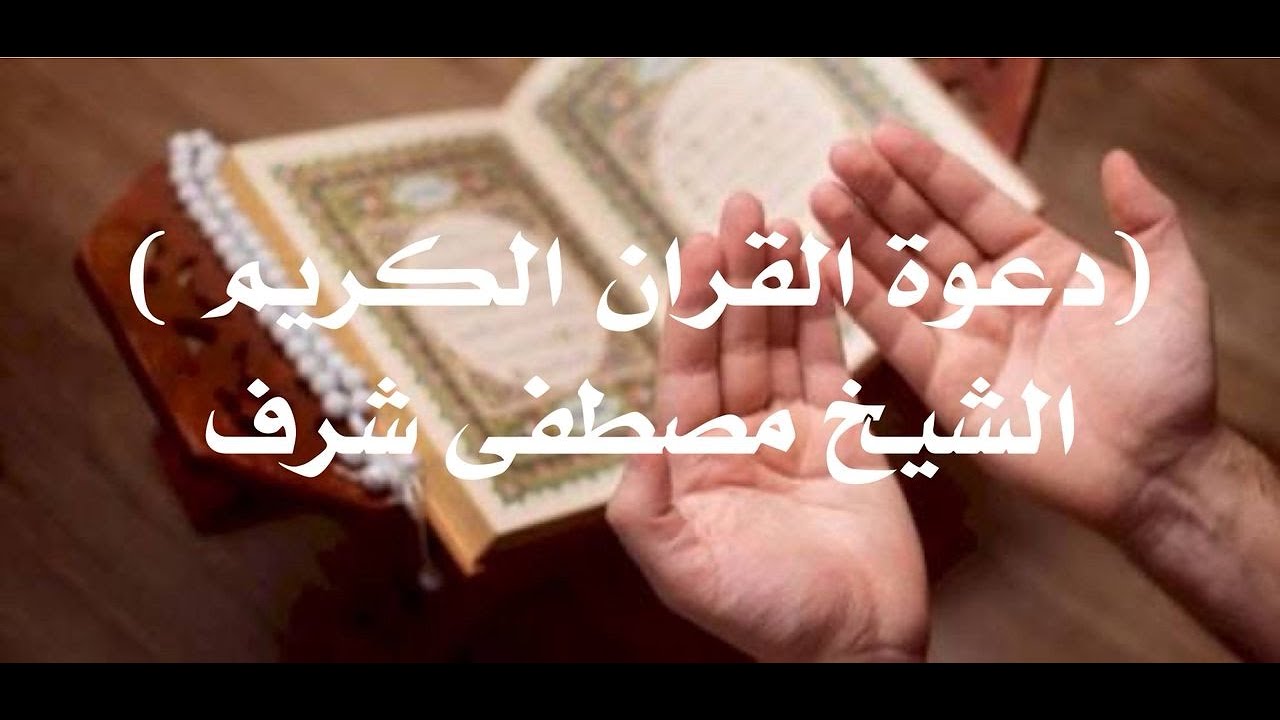 (دعوة القران الكريم )
الشيخ مصطفى شرف